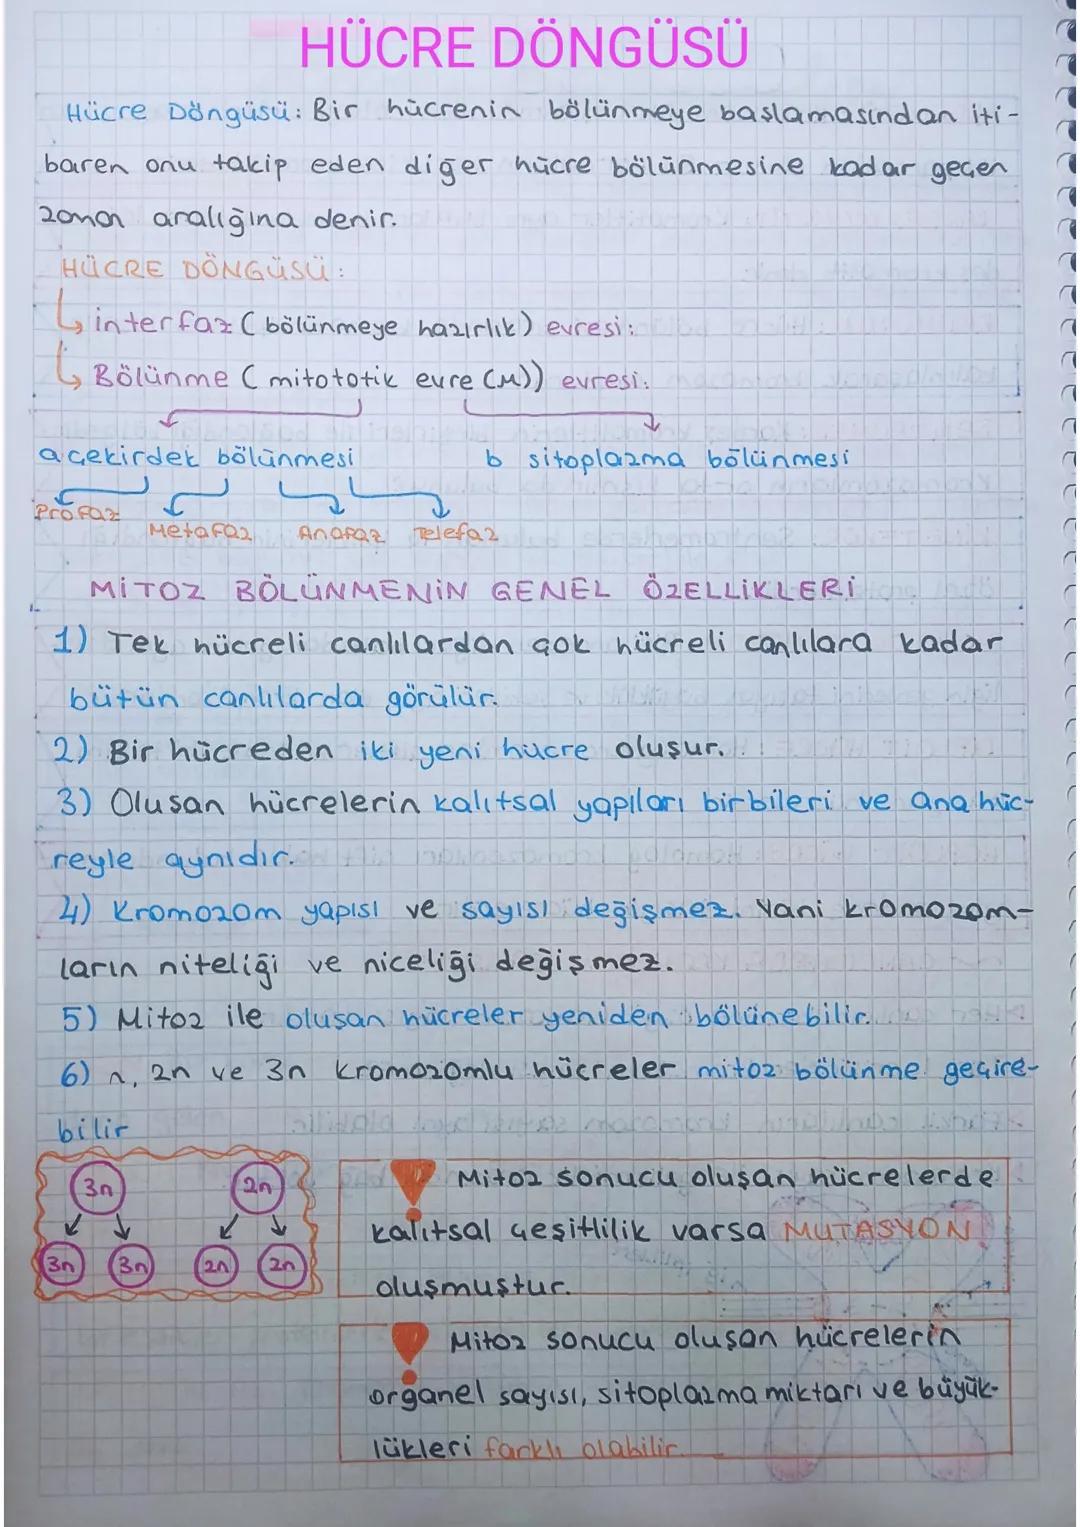 HÜCRE DÖNGÜSÜ
Hücre Döngüsü: Bir hücrenin bölünmeye başlamasından iti-
baren onu takip eden diğer hücre bölünmesine kadar geçen
zaman aralığına denir.
HÜCRE DÖNGÜSÜ:
interfaz (bölünmeye hazırlık) evresi:
Bölünme (mitototik evre (M)) evresi:
a çekirdek bölünmesi b sitoplazma bölünmesi
Profaz Metafaz Anafaz Telefaz
MİTOZ BÖLÜNMENİN GENEL ÖZELLİKLERİ
1) Tek hücreli canlılardan çok hücreli canlılara kadar
bütün canlılarda görülür.
2) Bir hücreden iki yeni hücre oluşur.
3) Oluşan hücrelerin kalıtsal yapıları birbileri ve ana hüc-
reyle aynıdır.
4) Kromozom yapısı ve sayısı değişmez. Yani kromozom-
ların niteliği ve niceliği değişmez.
5) Mitoz ile oluşan hücreler yeniden bölünebilir.
6) n, 2n ve 3n kromozomlu hücreler mitoz bölünme geçire-
bilir
3n 2n
3n 3n 2n 2n
! Mitoz sonucu oluşan hücrelerde
kalıtsal çeşitlilik varsa MUTASYON
oluşmuştur.
! Mitoz sonucu oluşan hücrelerin
organel sayısı, sitoplazma miktarı ve büyük-
lükleri farklı olabilir.